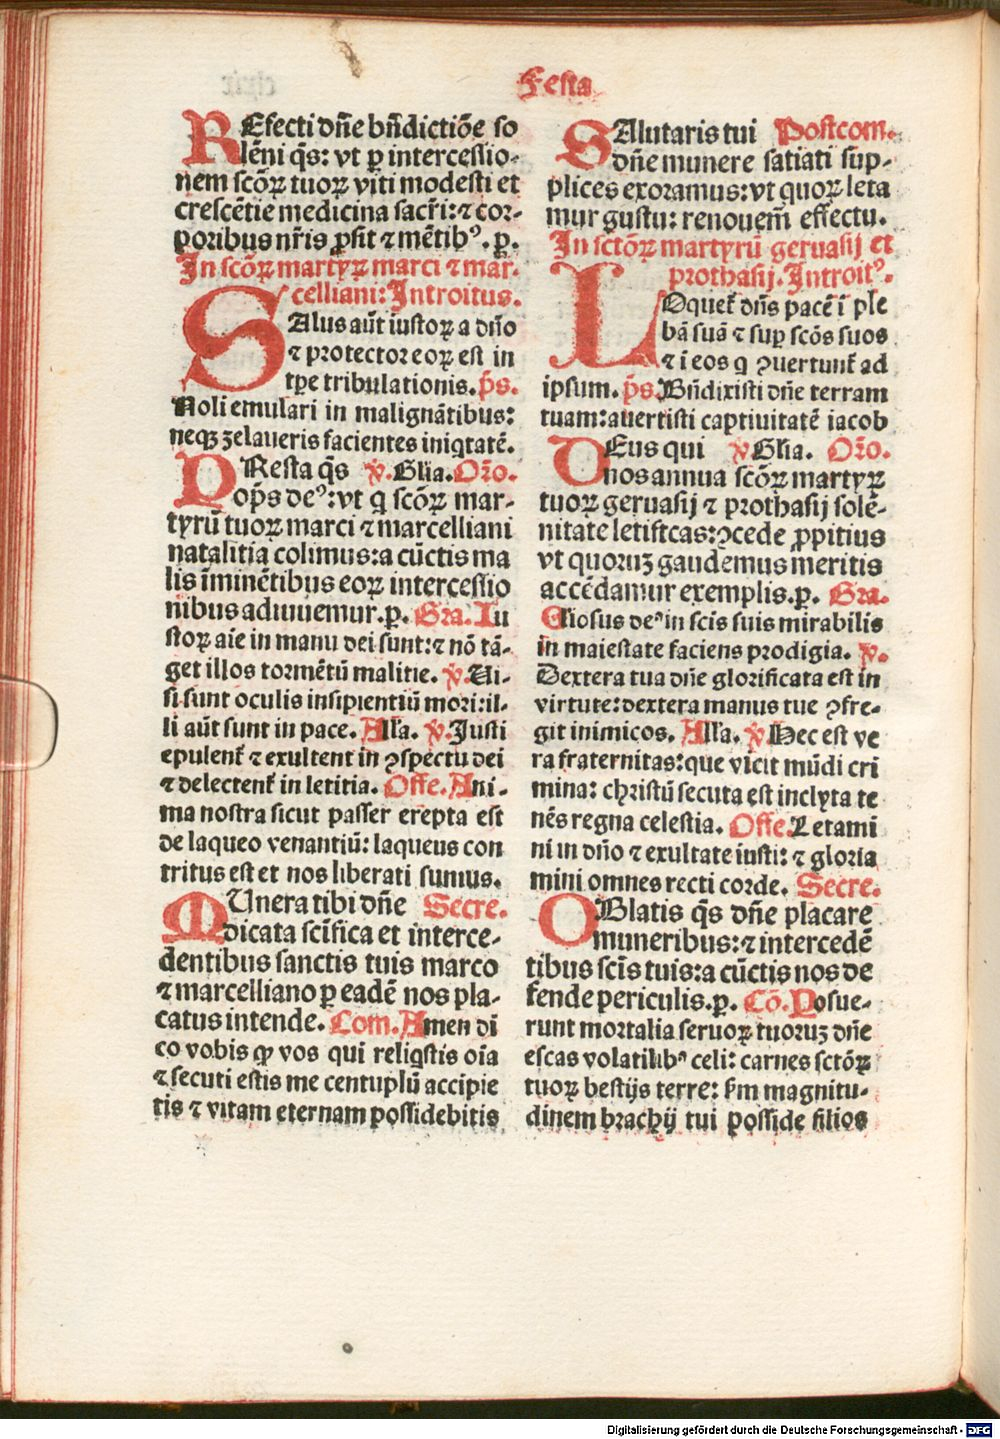 Festa
REfecti dn̄e bn̄dictiōe so
lēni q̄s: vt ꝑ intercessio-
nem scōꝝ tuoꝝ viti modesti et
crescētie medicina sacr̄i: ⁊ cor-
poribus nr̄is ꝓsit ⁊ mētibꝰ. ꝑ.
In scōꝝ martyꝝ marci ⁊ mar-
celliani: Introitus.
SAlus aūt iustoꝝ a dn̄o
⁊ protector eoꝝ est in
tꝑe tribulationis. p̄s.
Noli emulari in malignātibus:
neqꝫ zelaueris facientes iniqtatē.
PResta q̄s ℣. Glia. Or̄o.
op̄s deꝰ: vt q scōꝝ mar-
tyrū tuoꝝ marci ⁊ marcelliani
natalitia colimus: a cūctis ma
lis īminētibus eoꝝ intercessio
nibus adiuuemur. ꝑ. Gra. Iu
stoꝝ aīe in manu dei sunt: ⁊ nō tā-
get illos tormētū malitie. ℣. Ui-
si sunt oculis insipientiū mori: il-
li aūt sunt in pace. Alla. ℣. Justi
epulent̄ ⁊ exultent in ꝯspectu dei
⁊ delectent̄ in letitia. Offe. Ani-
ma nostra sicut passer erepta est
de laqueo venantiū: laqueus con
tritus est et nos liberati sumus.
MUnera tibi dn̄e Secre.
dicata scīfica et interce-
dentibus sanctis tuis marco
⁊ marcelliano ꝑ eadē nos pla-
catus intende. Com. Amen di
co vobis ꝙ vos qui reliqstis oīa
⁊ secuti estis me centuplū accipie
tis ⁊ vitam eternam possidebitis
SAlutaris tui Postcom.
dn̄e munere satiati sup-
plices exoramus: vt quoꝝ leta
mur gustu: renouem̄ effectu.
In sctōꝝ martyrū geruasij et
prothasij. Introitꝰ.
LOquet̄ dn̄s pacē ī ple
bā suā ⁊ suꝑ scōs suos
⁊ ī eos q ꝯuertunt̄ ad
ipsum. p̄s. Bn̄dixisti dn̄e terram
tuam: auertisti captiuitatē iacob
DEus qui ℣. Glia. Or̄o.
nos annua scōꝝ martyꝝ
tuoꝝ geruasij ⁊ prothasij solē-
nitate letificas: ꝯcede ꝓpitius
vt quoruꝫ gaudemus meritis
accēdamur exemplis. ꝑ. Gra.
Gliosus deꝰ in scīs suis mirabilis
in maiestate faciens prodigia. ℣.
Dextera tua dn̄e glorificata est in
virtute: dextera manus tue ꝯfre-
git inimicos. Alla. ℣. Hec est ve
ra fraternitas: que vicit mūdi cri
mina: christū secuta est inclyta te
nēs regna celestia. Offe. Letami
ni in dn̄o ⁊ exultate iusti: ⁊ gloria
mini omnes recti corde. Secre.
OBlatis q̄s dn̄e placare
muneribus: ⁊ intercedē
tibus scīs tuis: a cūctis nos de
fende periculis. ꝑ. Cō. Posue-
runt mortalia seruoꝝ tuoruꝫ dn̄e
escas volatilibꝰ celi: carnes sctōꝝ
tuoꝝ bestijs terre: f̄m magnitu-
dinem brachij tui posside filios
Digitalisierung gefördert durch die Deutsche Forschungsgemeinschaft - DFG